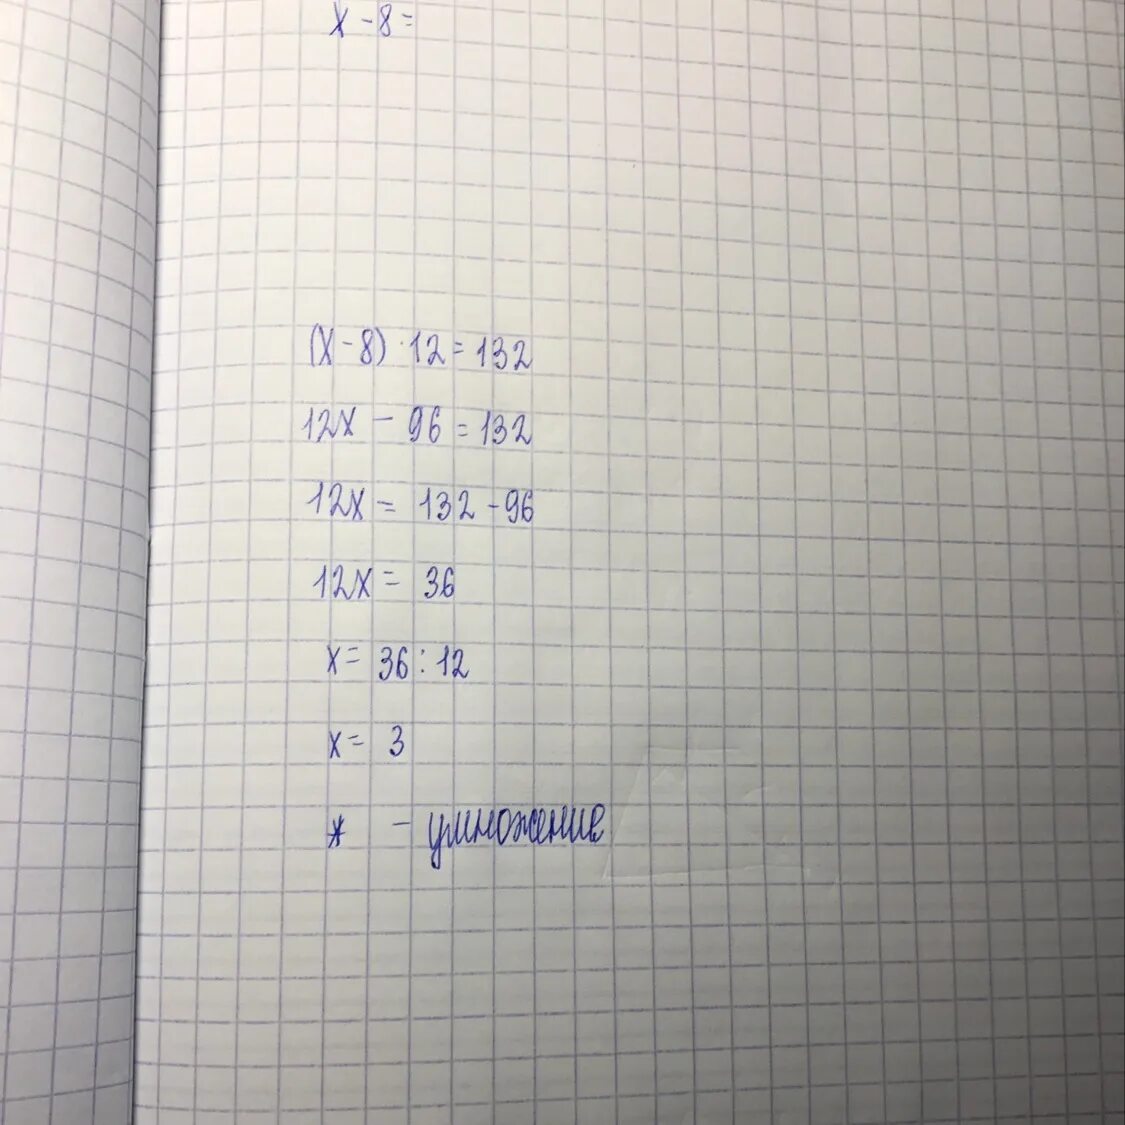 x - 8 =
(x - 8) · 12 = 132
12x - 96 = 132
12x = 132 - 96
12x = 36
x = 36 : 12
x = 3
* - умножение